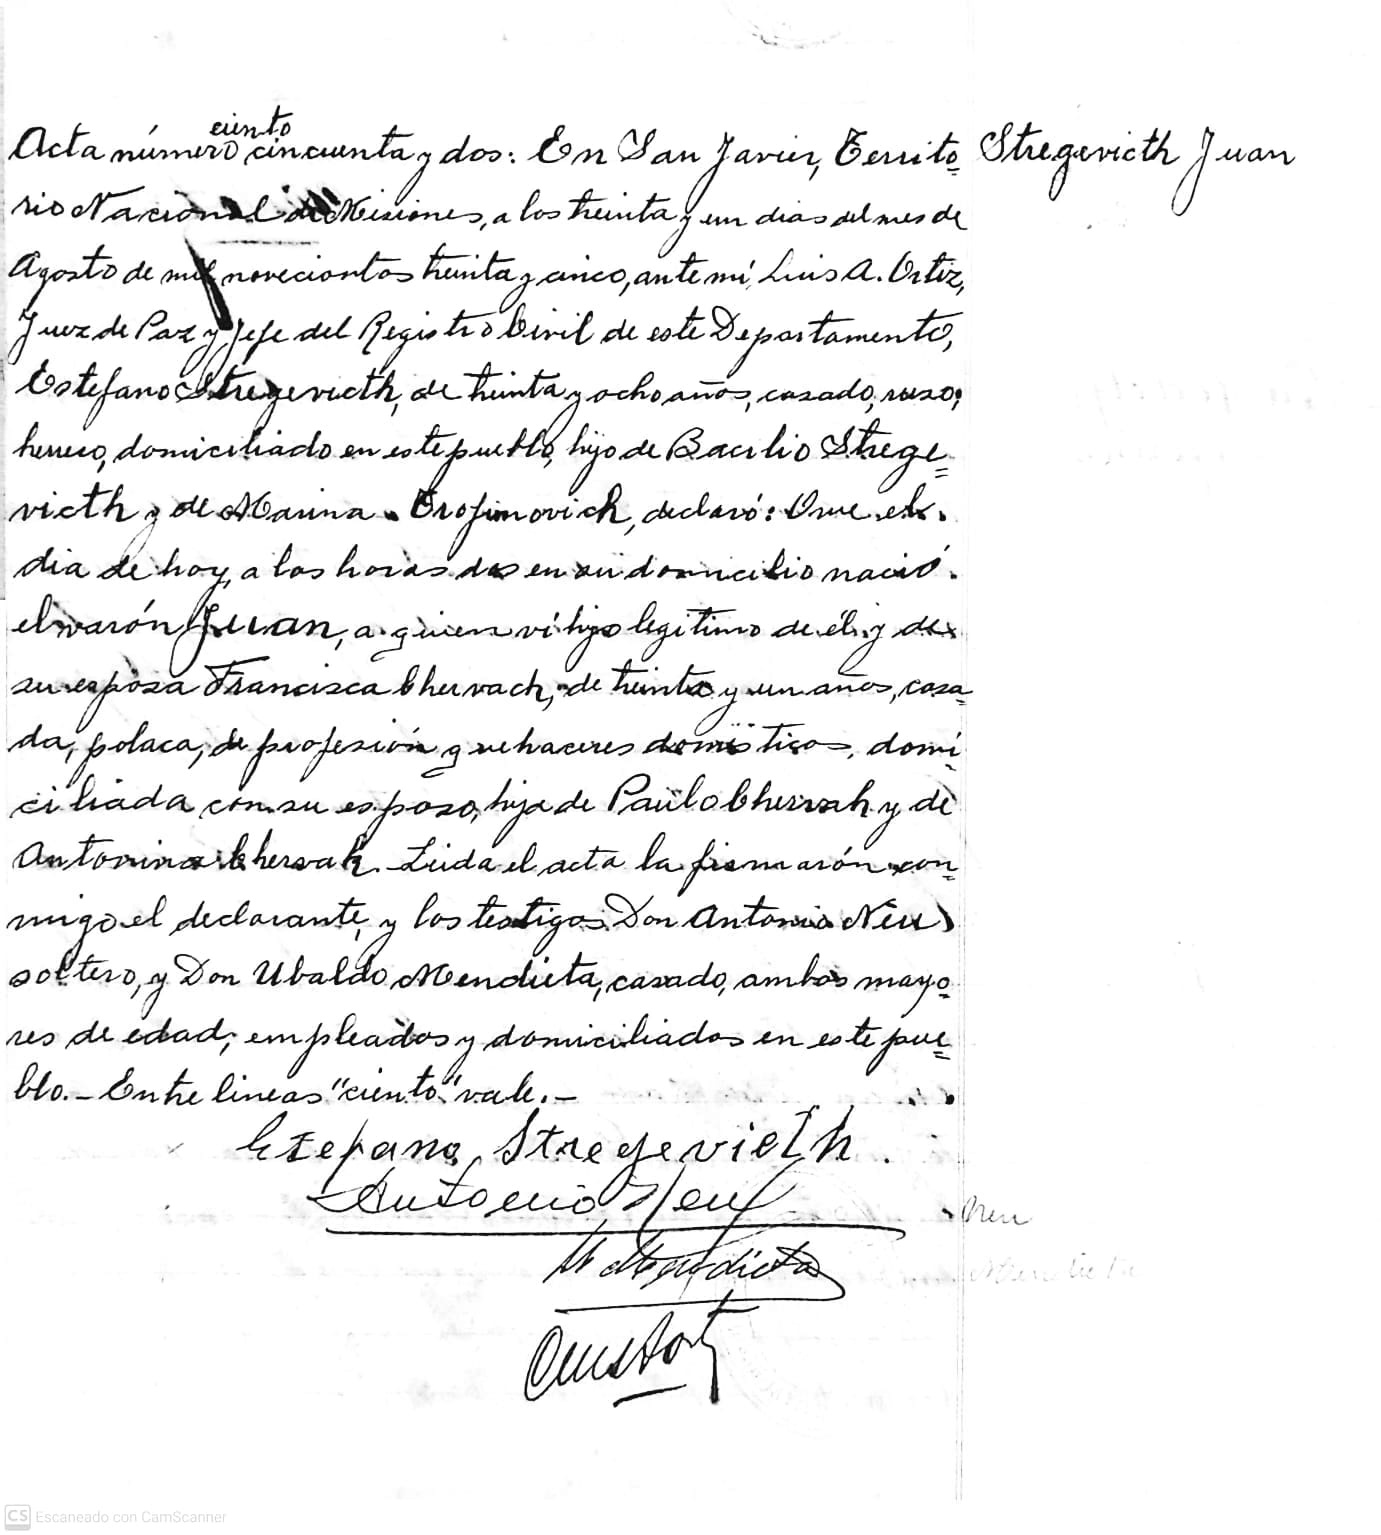 ciento
Acta número cincuenta y dos: En San Javier, Territo= Stregevicth Juan
rio Nacional de Misiones, a los treinta y un dias del mes de
Agosto de mil novecientos treinta y cinco, ante mí, Luis A. Ortiz,
Juez de Paz y Jefe del Registro Civil de este Departamento,
Estefano Stregevicth, de treinta y ocho años, casado, ruso,
herrero, domiciliado en este pueblo, hijo de Bacilio Strege=
victh y de Marina Trofimovich, declaró: Que el
dia de hoy, a las horas dos en su domicilio nació
el varón Juan, a quien ví hijo legitimo de él y de
su esposa Francisca Chervach, de treinta y un años, casa=
da, polaca, de profesión quehaceres domésticos, domi=
ciliada con su esposo, hija de Paulo Chervah y de
Antonina Chervak. Leida el acta la firmarón con=
migo el declarante, y los testigos Don Antonio Neu
soltero, y Don Ubaldo Mendieta, casado, ambos mayo=
res de edad, empleados y domiciliados en este pue=
blo. - Entre lineas "ciento" vale. -
Estefano Stregevieth.
Antonio Neu
Neu
U Mendieta
Mendieta
CS Escaneado con CamScanner